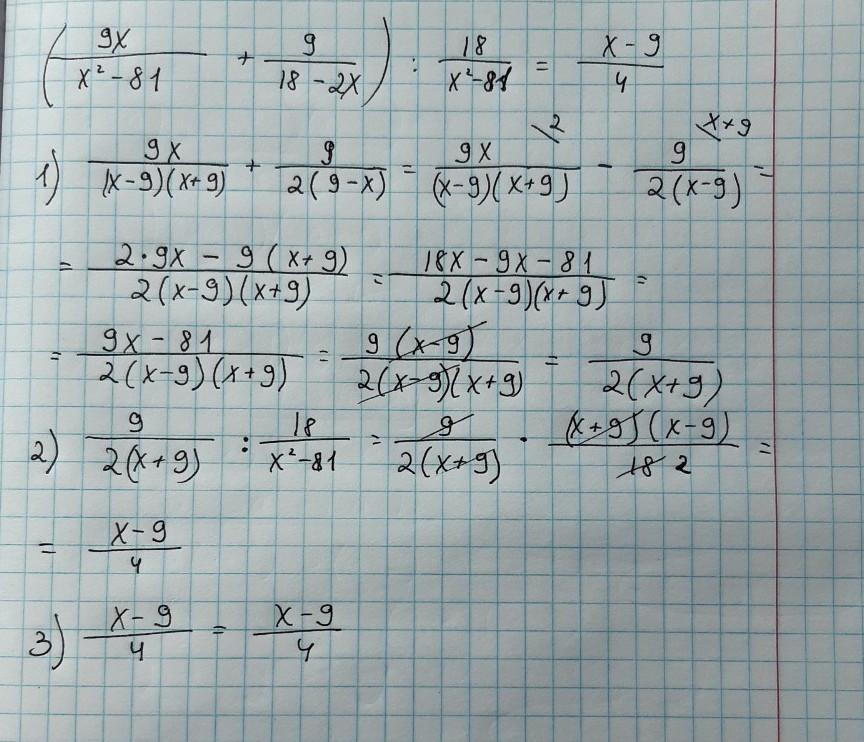 (9x/(x²-81) + 9/(18-2x)) : 18/(x²-81) = (x-9)/4
1) 9x/((x-9)(x+9)) + 9/(2(9-x)) = 9x\2/((x-9)(x+9)) - 9\x+9/(2(x-9)) =
= (2·9x - 9(x+9))/(2(x-9)(x+9)) = (18x-9x-81)/(2(x-9)(x+9)) =
= (9x-81)/(2(x-9)(x+9)) = 9(x-9)/(2(x-9)(x+9)) = 9/(2(x+9))
2) 9/(2(x+9)) : 18/(x²-81) = 9/(2(x+9)) · (x+9)(x-9)/(18 2) =
= (x-9)/4
3) (x-9)/4 = (x-9)/4